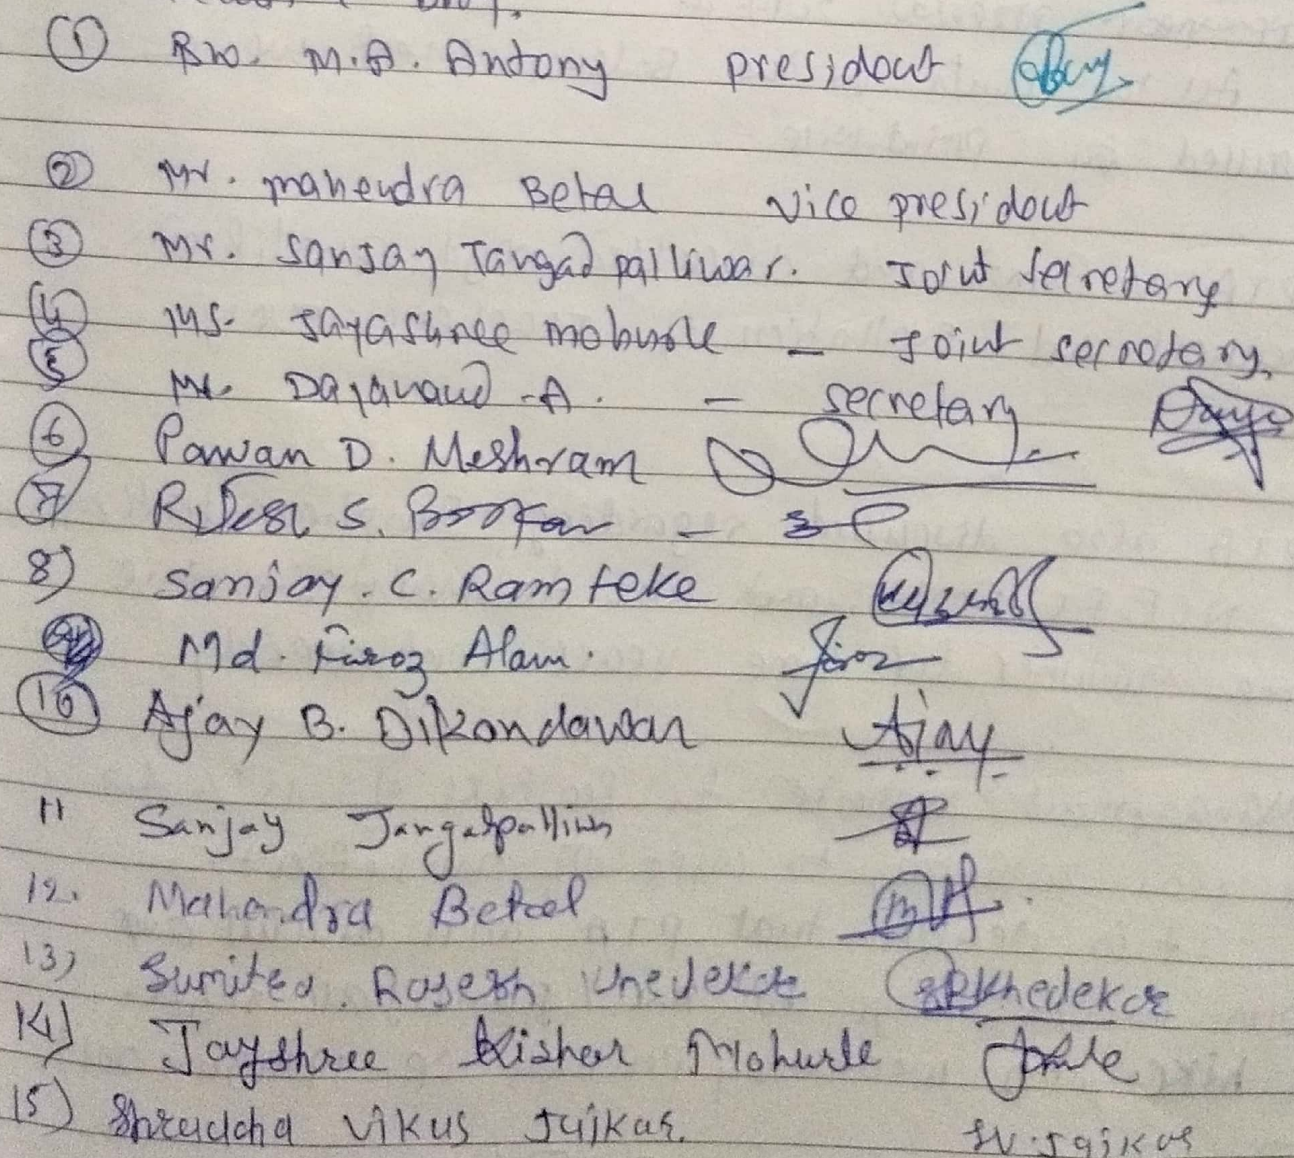 ① Bro. M.A. Antony president
② Mr. mahendra Betal Vice president
③ Mr. Sanjay Jangadpalliwar. Joint Secretary
④ Ms. Jayashree mohurle - Joint secretary
⑤ Mr. Dayanand A. - secretary
⑥ Pawan D. Meshram
⑦ S. -
8) Sanjay. C. Ramteke
Md. Firoz Alam. Firoz
⑩ Ajay B. Dikondawar Ajay
11 Sanjay
12. Mahendra Betal
13) Rajesh Khedekar Khedekar
14) Jayshree Kishor Mohurle
15) Shraddha Vikas Jujkar.